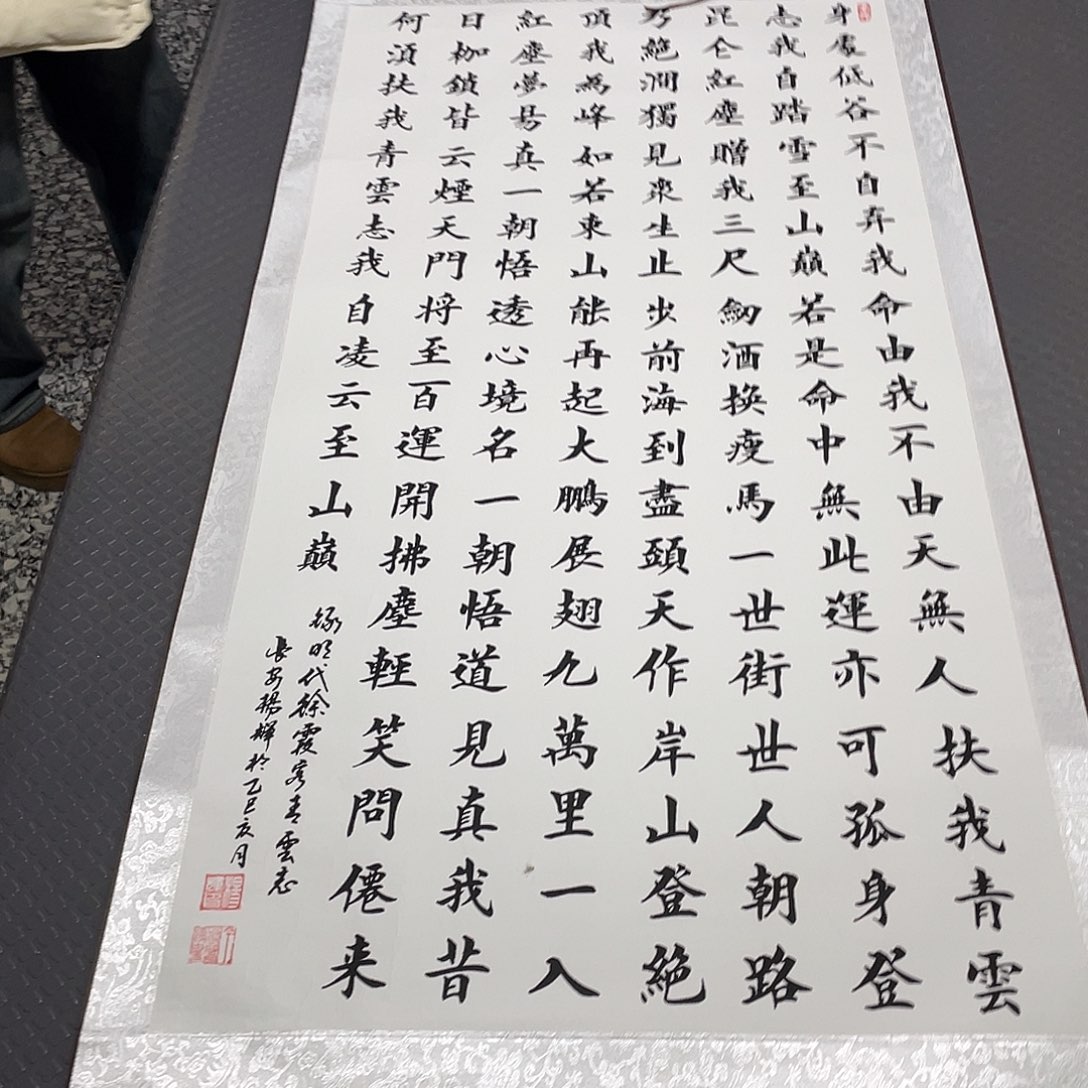 身處低谷不自弃我命由我不由天無人扶我青雲
志我自踏雪至山巔若是命中無此運亦可孤身登
昆仑紅塵贈我三尺劍酒換瘦馬一世街世人朝路
乃絕澗獨見衆生止步前海到盡頭天作岸山登絕
頂我為峰如若東山能再起大鵬展翅九萬里一入
紅塵夢易真一朝悟透心境名一朝悟道見真我昔
日枷鎖皆云煙天門将至百運開拂塵輕笑問僊来
何須扶我青雲志我自凌云至山巔
録明代徐霞客青雲志
長安楊輝於乙巳夏月